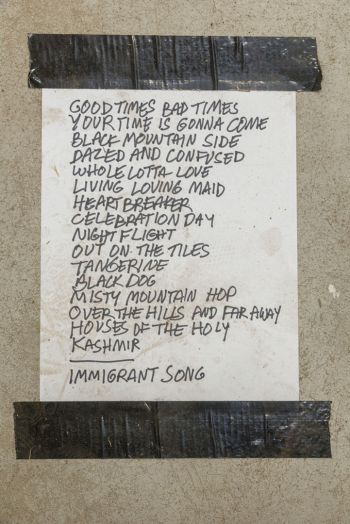 GOOD TIMES BAD TIMES
YOUR TIME IS GONNA COME
BLACK MOUNTAIN SIDE
DAZED AND CONFUSED
WHOLE LOTTA LOVE
LIVING LOVING MAID
HEARTBREAKER
CELEBRATION DAY
NIGHT FLIGHT
OUT ON THE TILES
TANGERINE
BLACK DOG
MISTY MOUNTAIN HOP
OVER THE HILLS AND FAR AWAY
HOUSES OF THE HOLY
KASHMIR
IMMIGRANT SONG